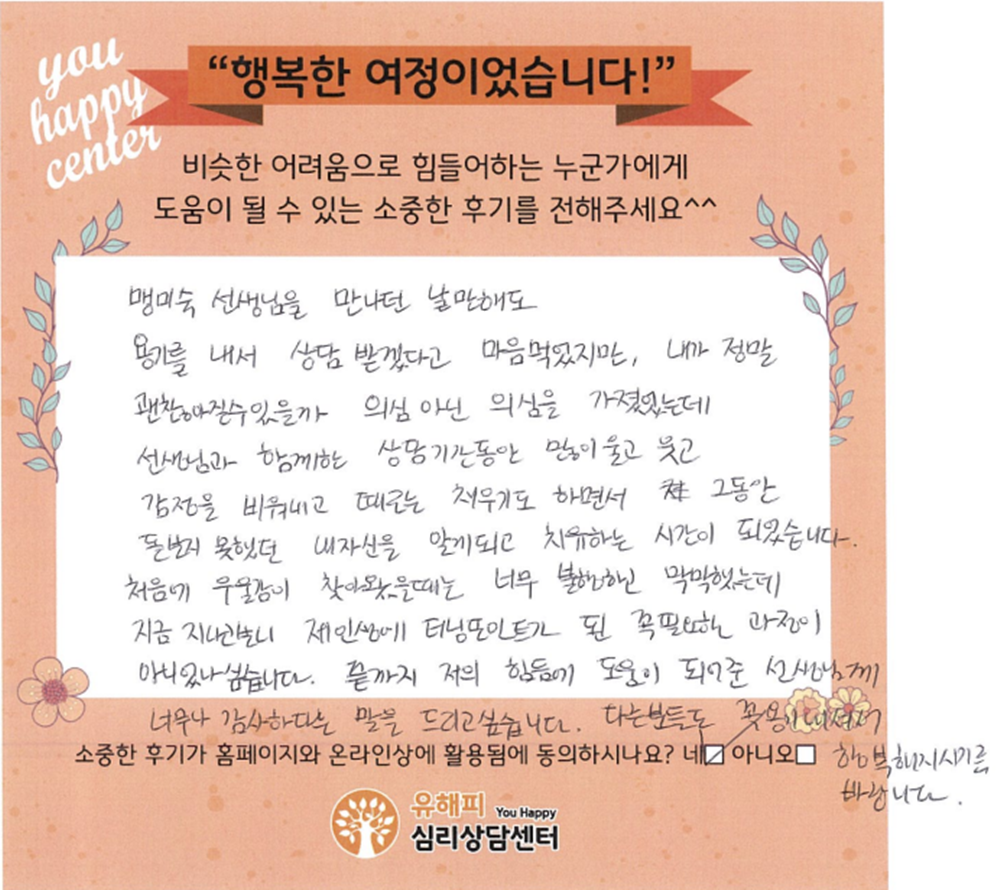 you
happy
center
“행복한 여정이었습니다!”
비슷한 어려움으로 힘들어하는 누군가에게
도움이 될 수 있는 소중한 후기를 전해주세요^^
맹미숙 선생님을 만나던 날만해도
용기를 내서 상담 받겠다고 마음먹었지만, 내가 정말
괜찮아질수있을까 의심 아닌 의심을 가졌었는데
선생님과 함께하는 상담기간동안 많이 울고 웃고
감정을 비워내고 때로는 채우기도 하면서 그동안
돌보지 못했던 내자신을 알게되고 치유하는 시간이 되었습니다.
처음에 우울감이 찾아왔을때는 너무 불행하고 막막했는데
지금 지나간보니 제인생에 터닝포인트가 된 꼭필요한 과정이
아니었나싶습니다. 끝까지 저의 힘듦에 도움이 되어준 선생님께
너무나 감사하다는 말을 드리고싶습니다. 다른분들도 꼭용기내셔서
소중한 후기가 홈페이지와 온라인상에 활용됨에 동의하시나요? 네☑ 아니오□
행복해지시기를
바랍니다.
유해피 You Happy
심리상담센터